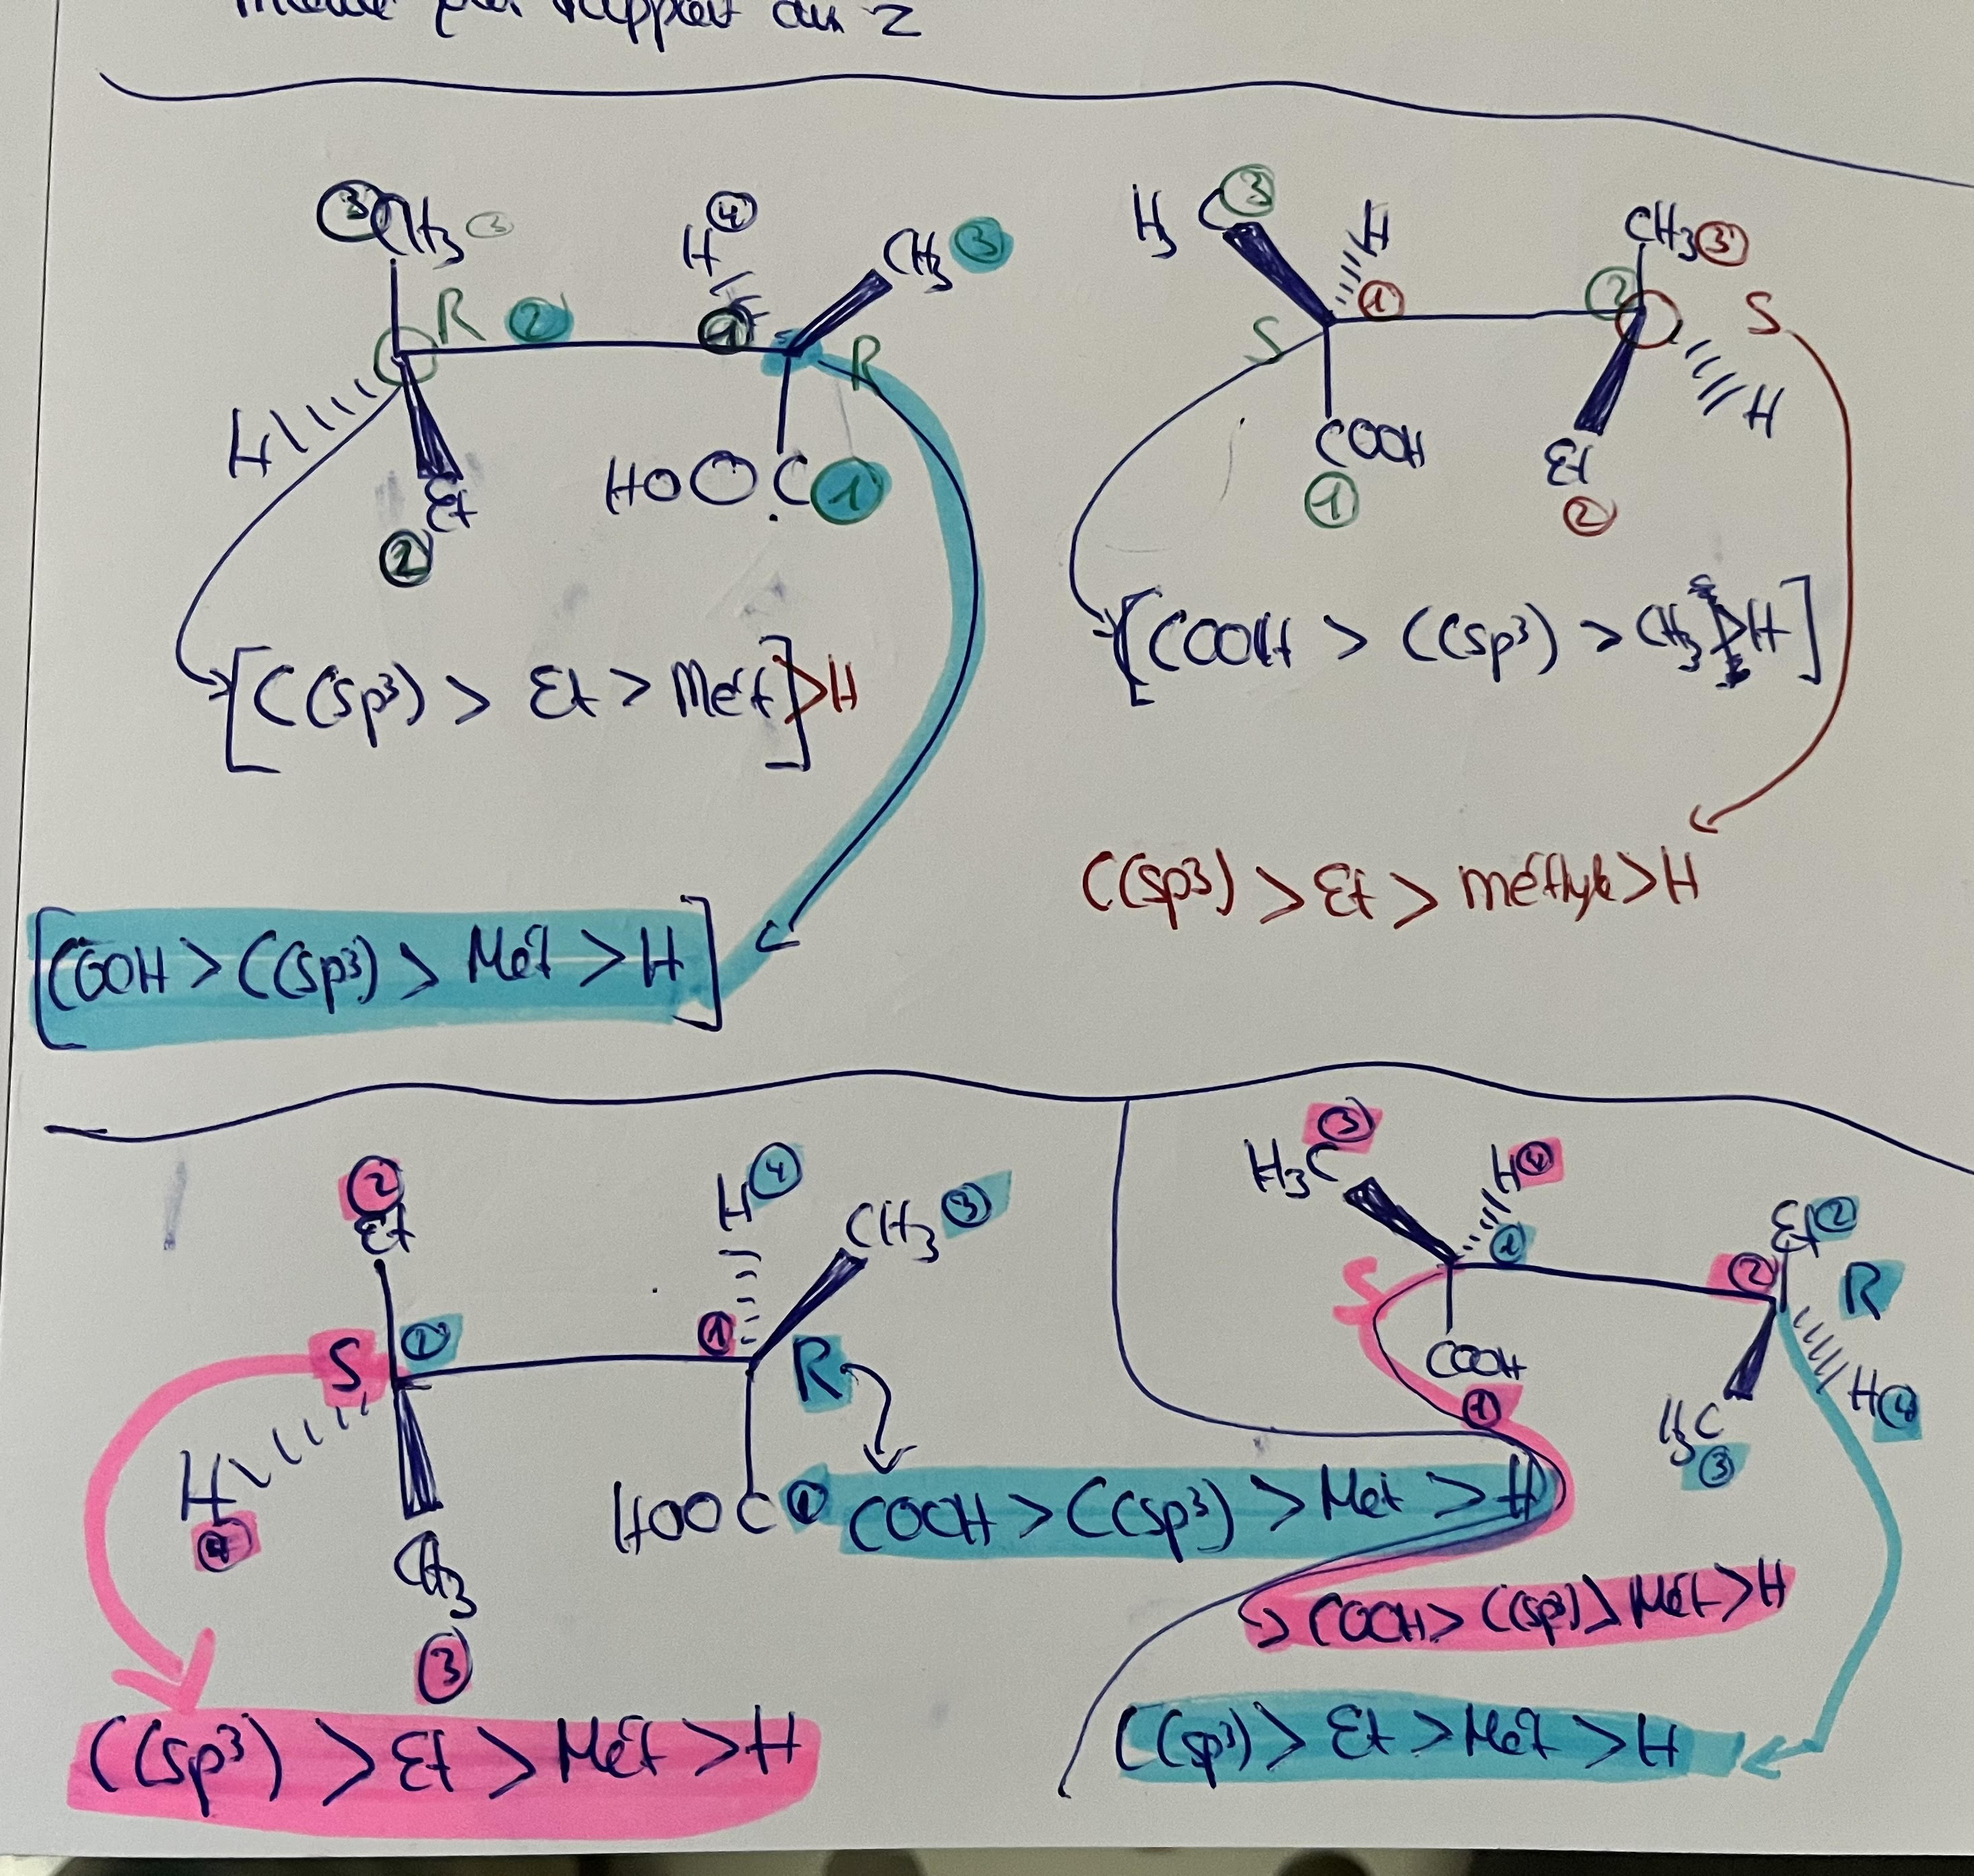 par rapport au 2
③ CH3 ③
H ④
CH3 ③
R ②
①
R
H
Et
②
HOOC ①
[C(sp³) > Et > Mét] > H
[COOH > C(sp³) > Mét > H]
H3C ③
H
①
S
COOH
①
CH3 ③
②
S
H
Et
②
[COOH > C(sp³) > CH3 > H]
C(sp3) > Et > méthyle > H
②
Et
H ④
CH3 ③
S
①
R
H
④
CH3
③
HOOC ① COOH > C(sp³) > Mét > H
C(sp³) > Et > Mét > H
H3C ③
H ④
①
S
COOH
①
Et ②
②
R
H ④
H3C
③
COOH > C(sp³) > Mét > H
C(sp³) > Et > Mét > H